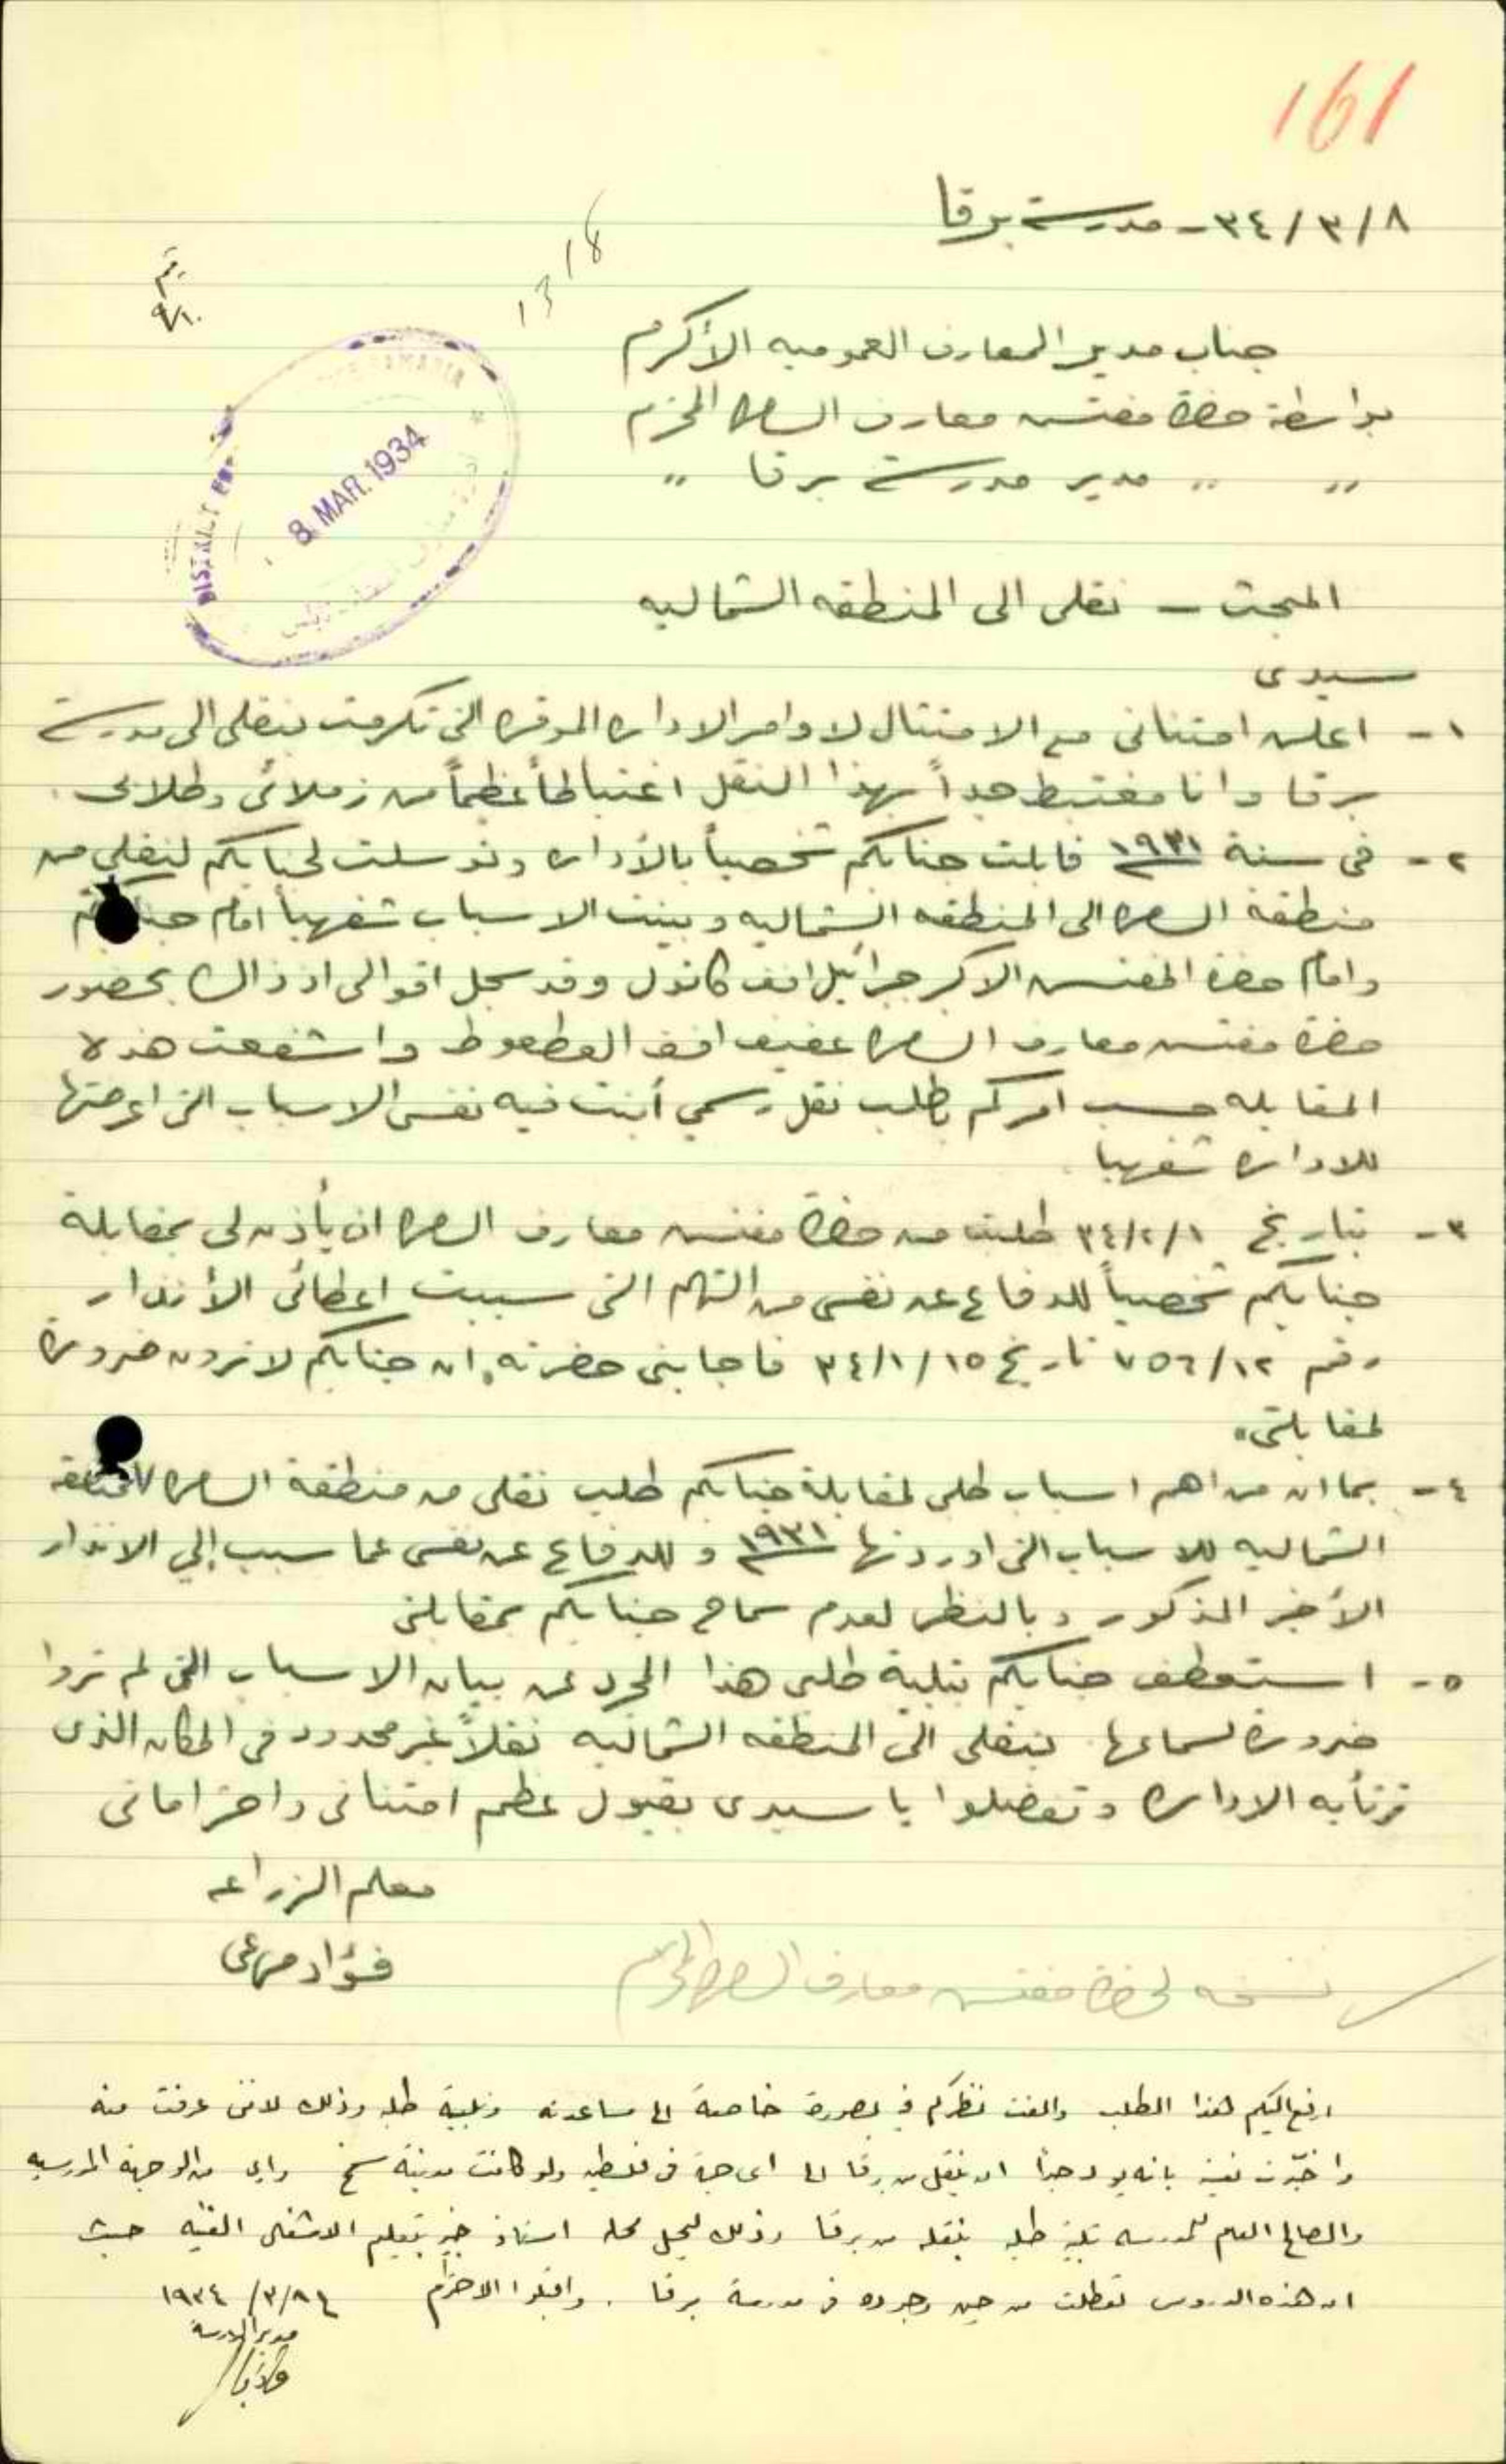 161
٣٤/٣/٨ - مدرسة برقا
1318
جناب مدير المعارف العموميه الأكرم
بواسطة حضرة مفتش معارف السامره المحترم
" " مدير مدرسة برقا "
8 MAR. 1934
DISTRICT
SAMARIA
المبحث - نقلي الى المنطقه الشماليه
سيدي
١- اعلن امتناني مع الامتثال لاوامر الاداره الموقره التي تكرمت بنقلي الى مدرسة
برقا وانا مغتبط جداً بهذا النقل اغتباطاً عظيماً من زملائي وطلابي.
٢- في سنة ١٩٣١ قابلت جنابكم شخصياً بالأداره وتوسلت لجنابكم لنقلي من
منطقة السامره الى المنطقه الشماليه وبينت الاسباب شفهياً امام جنابكم
وامام حضرة المفتش الاكبر جبرائيل افندي كاتول وقد سجل اقوالي اذ ذاك بحضور
حضرة مفتش معارف السامره عفيف افندي العطعوط واشفعت هذه
المقابله حسب امركم بطلب نقل رسمي أبنت فيه نفس الاسباب التي اعرضتها
للاداره شفهيا
٣- بتاريخ ٣٤/٢/١ طلبت من حضرة مفتش معارف السامره ان يأذن لي بمقابلة
جنابكم شخصياً للدفاع عن نفسي من التهم التي سببت اعطائي الأنذار
رقم ٧٥٦/١٢ تاريخ ٣٤/١/١٥ فاجابني حضرته ان جنابكم لا ترون ضرورة
لمقابلتي.
٤- بما ان من اهم اسباب طلبي لمقابلة جنابكم طلب نقلي من منطقة السامره للمنطقه
الشماليه للاسباب التي اوردتها ١٩٣١ وللدفاع عن نفسي عما سبب إلي الانذار
الأخير المذكور وبالنظر لعدم سماح جنابكم بمقابلتي
٥- استعطف جنابكم بتلبية طلبي هذا المجرد عن بيان الاسباب التي لم تروا
ضرورة لسماعها بنقلي الى المنطقه الشماليه نقلاً غير محدود في المكان الذي
ترتأيه الاداره وتفضلوا يا سيدي بقبول عظيم امتناني واحتراماتي
معلم الزراعه
فؤاد مرعي
نسخه لحضرة مفتش معارف السامره المحترم
ارفع اليكم هذا الطلب والفت نظركم في بصورة خاصة الى مساعدته وتلبية طلبه وذلك لانني عرفت منه
بانه يود جداً ان ينقل من برقا الى اي جهة في فلسطين ولو كانت مدينة سمخ واني من الوجهة المدرسيه
والصالح العام للمدرسه طلبه بنقله من برقا وذلك ليحل محله استاذ خبير بتعليم الاشغال الفنيه حيث
ان هذه الدروس تعطلت من حين وجوده في مدرسة برقا. واقبلوا الاحترام ١٩٣٤/٣/٨
مدير المدرسة